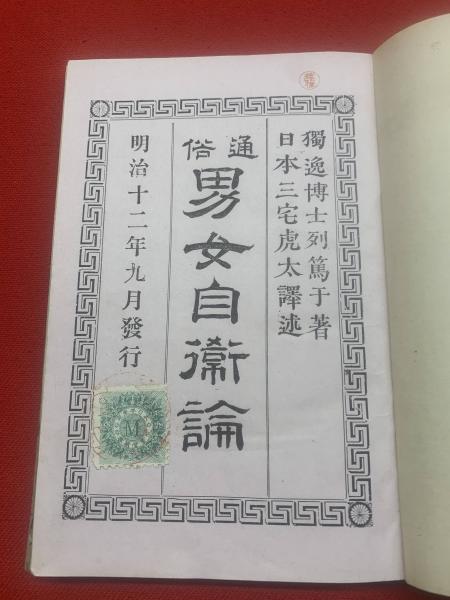 獨逸博士列篤于著
日本三宅虎太譯述
通俗
男女自衞論
明治十二年九月發行
M